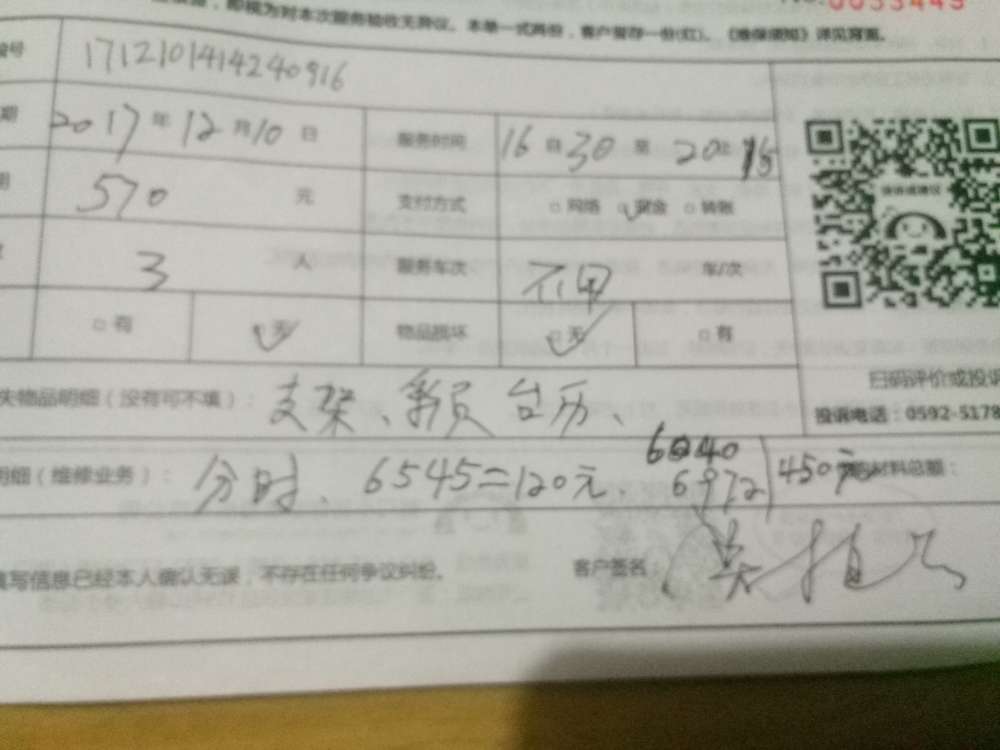 即视为对本次服务验收无异议。本单一式两份，客户留存一份(红)。《维保须知》详见背面。
0053449
1712101414240916
2017年12月10日 服务时间 16时30至20时15
570元 支付方式 □网络 ☑现金 □转账
3人 服务车次 车/次
□有 ☑无 物品损坏 ☑无 □有
扫码评价或投诉
失物品明细（没有可不填）： 支架、 台历、
投诉电话：0592-5178
明细（维修业务）： 分时、6545=120元、 6040 6972 450元 材料总额：
填写信息已经本人确认无误，不存在任何争议纠纷。 客户签名：